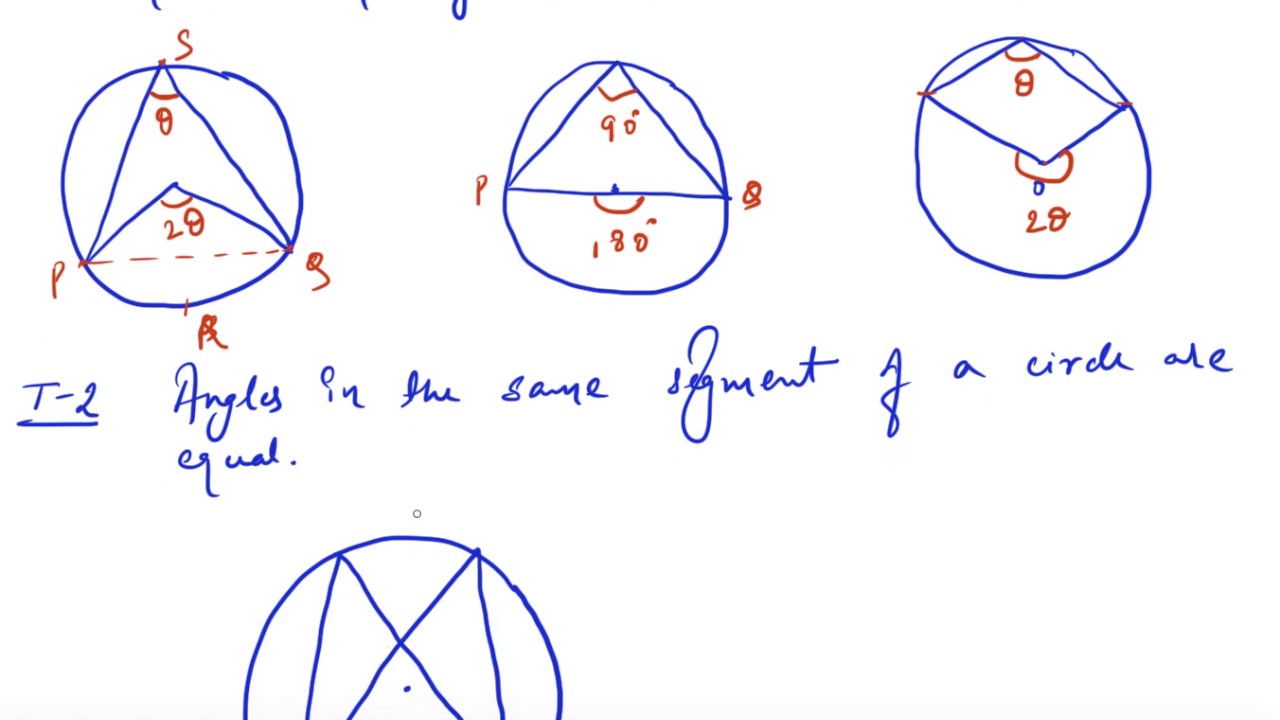 S
θ
2θ
P
Q
R
90°
P
Q
180°
θ
O
2θ
T-2 Angles in the same segment of a circle are
equal.